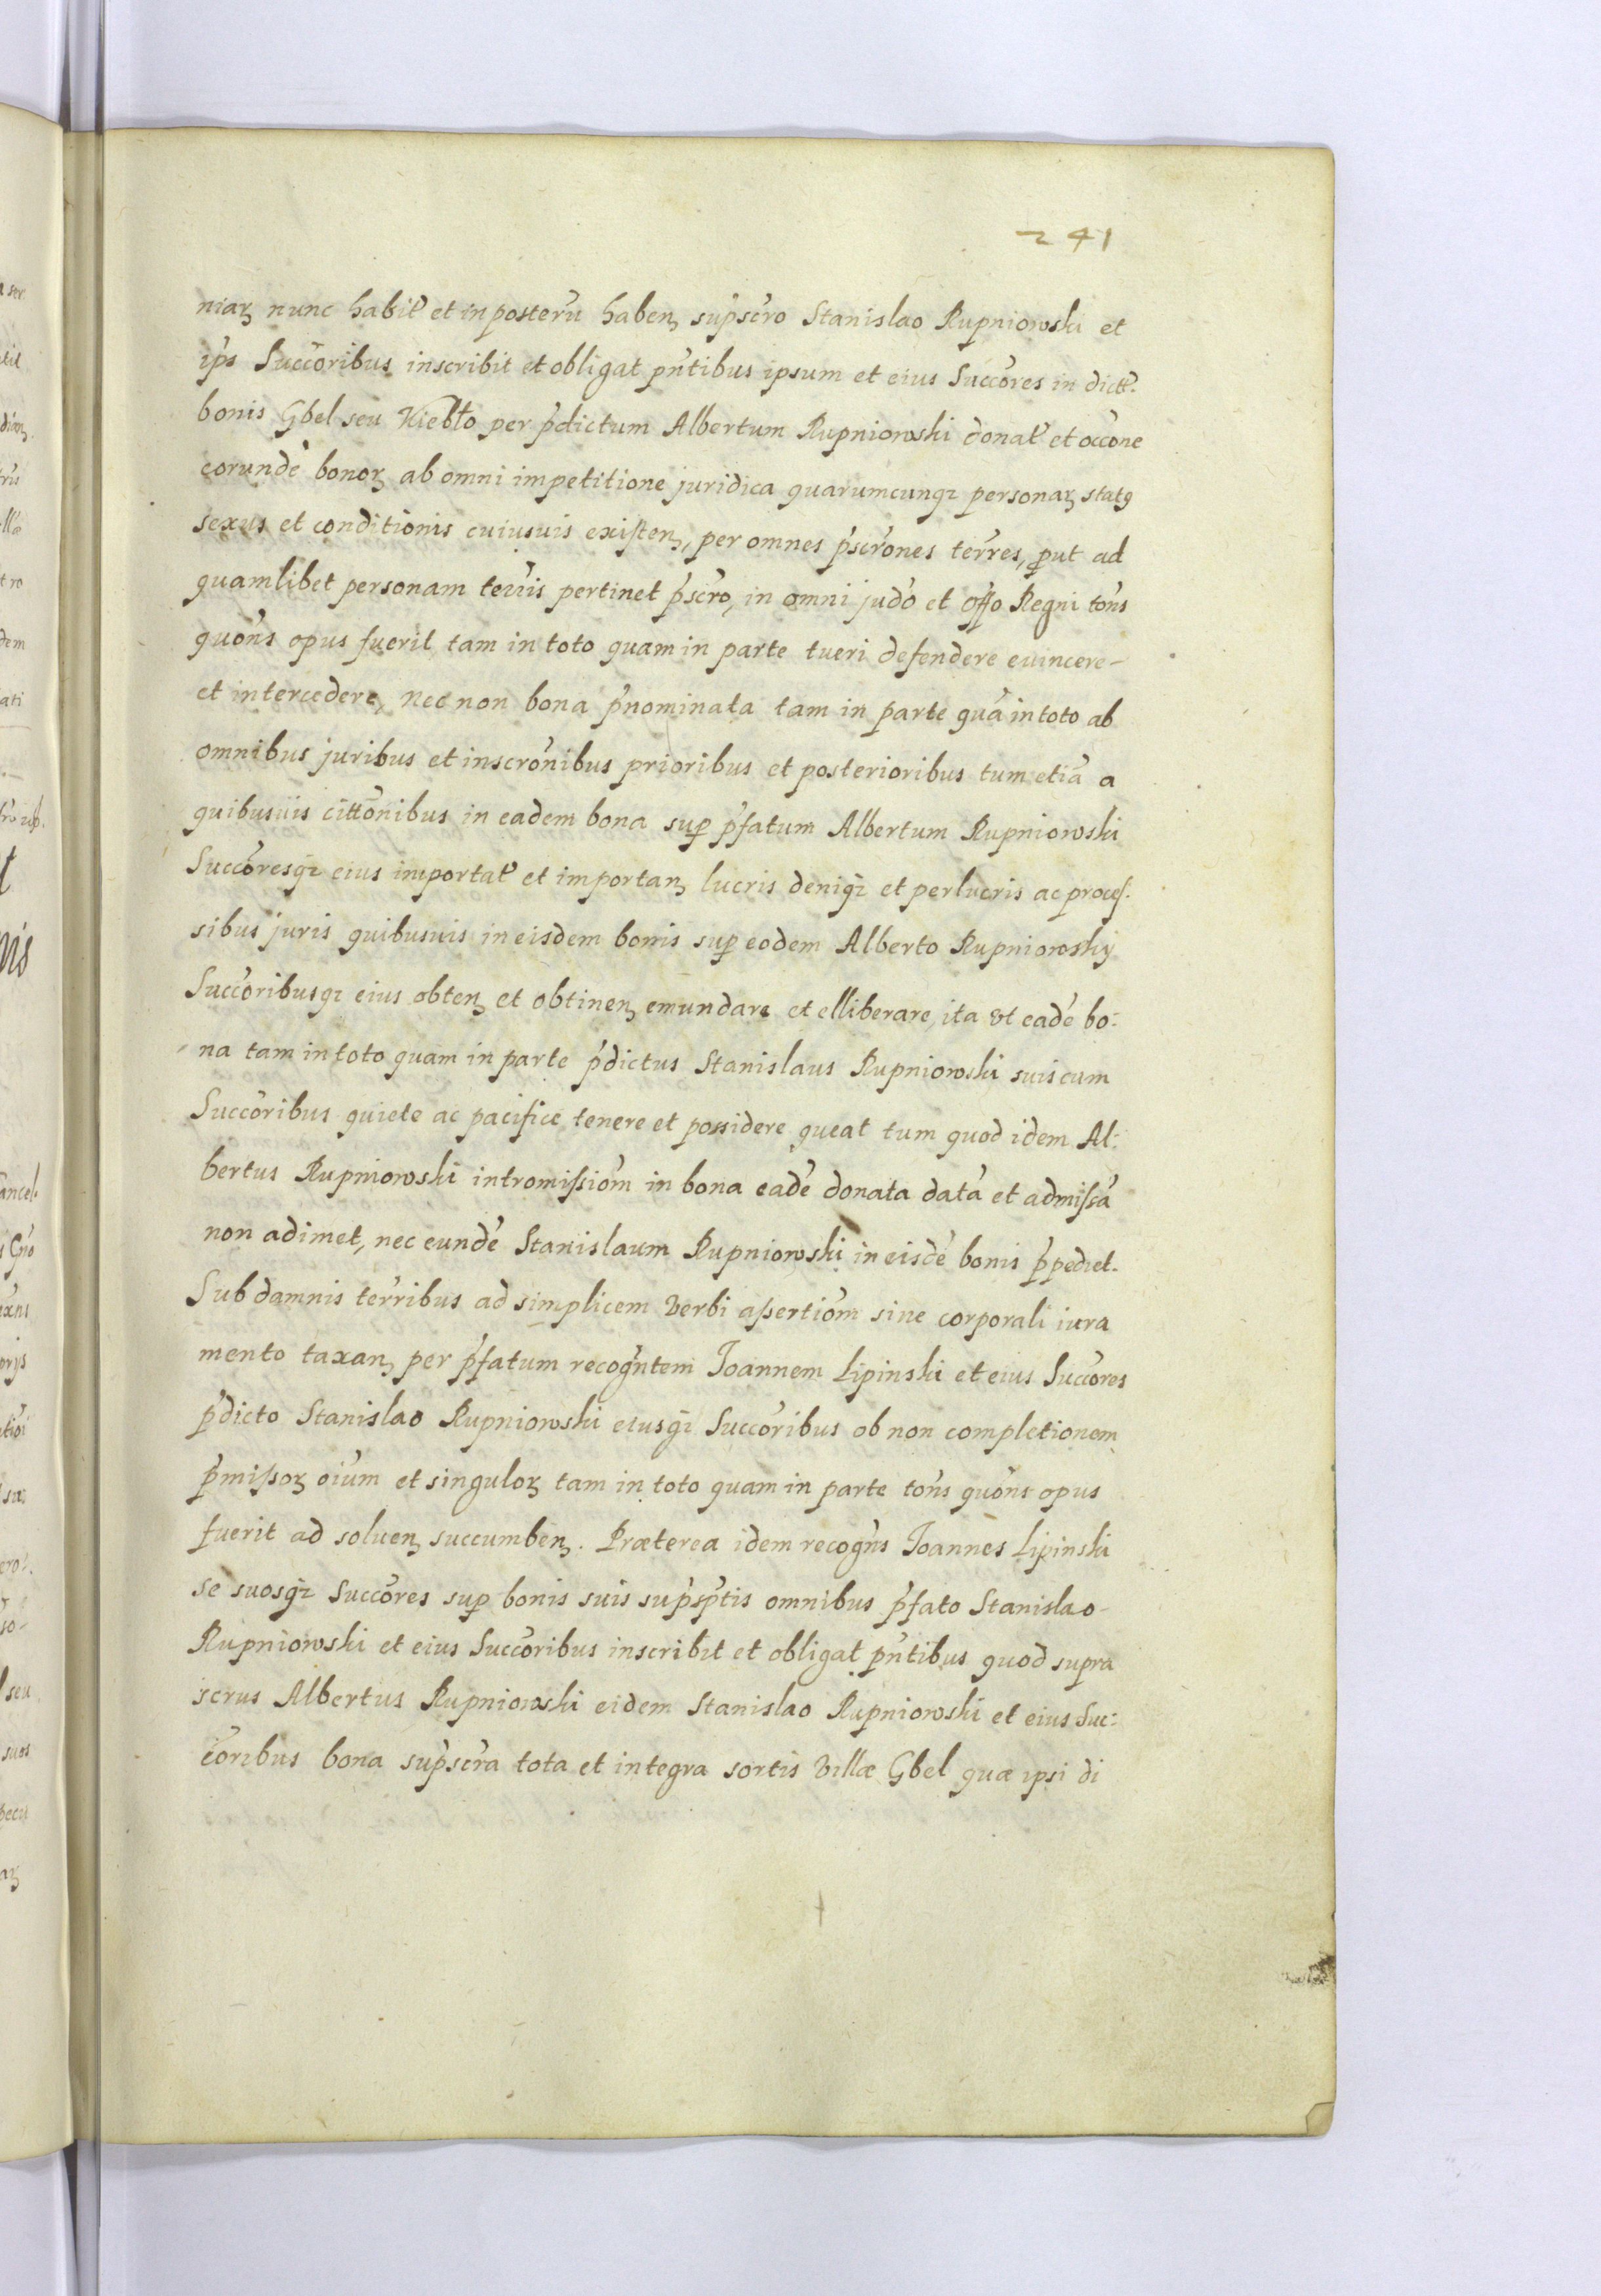 241
niarꝫ nunc habit̃ et in posterũ habenꝫ sup̃scr̃o Stanislao Rupniowski et
ip̃s Succõribus inscribit et obligat pñtibus ipsum et eius Succõres in dict̃.
bonis Gbel seu Kiebło per p̃dictum Albertum Rupniowski donat̃ et occõne
eorundẽ bonorꝫ ab omni impetitione juridica quarumcunqꝫ personarꝫ statꝰ
sexus et conditionis cuiusuis existenꝫ, per omnes p̃scrõnes terr̃es, ꝓut ad
quamlibet personam terr̃is pertinet p̃scr̃o, in omni judõ et offo Regni tõns
quõns opus fuerit tam in toto quam in parte tueri defendere euincere-
et intercedere, nec non bona p̃nominata tam in parte quã in toto ab
omnibus juribus et inscrõnibus prioribus et posterioribus tum etiã a
quibusuis cittõnibus in eadem bona suꝑ p̃fatum Albertum Rupniowski
Succõresqꝫ eius importat̃ et importanꝫ lucris deniqꝫ et perlucris ac proces.
sibus juris quibusuis in eisdem bonis suꝑ eodem Alberto Rupniowsky
Succõribusqꝫ eius obtenꝫ et obtinenꝫ emundare et elliberare, ita vt eadẽ bo:
na tam in toto quam in parte p̃dictus Stanislaus Rupniowski suis cum
Succõribus quiete ac pacifice tenere et possidere queat tum quod idem Al:
bertus Rupniowski intromissiõm in bona eadẽ donata datã et admissã
non adimet, nec eundẽ Stanislaum Rupniowski in eisdẽ bonis p̃pediet.
Sub damnis terr̃ibus ad simplicem verbi assertiõm sine corporali iura
mento taxanꝫ per p̃fatum recogñtem Joannem Lipinski et eius Succõres
p̃dicto Stanislao Rupniowski eiusqꝫ Succõribus ob non completionem
p̃missorꝫ oĩum et singulorꝫ tam in toto quam in parte tõns quõns opus
fuerit ad soluenꝫ succumbenꝫ. Præterea idem recogñs Joannes Lipinski
se suosqꝫ Succõres suꝑ bonis suis sup̃sp̃tis omnibus p̃fato Stanislao-
Rupniowski et eius Succõribus inscribit et obligat pñtibus quod supra
scrus Albertus Rupniowski eidem Stanislao Rupniowski et eius Suc:
cõribus bona sup̃scr̃a tota et integra sortis Villæ Gbel quæ ipsi di